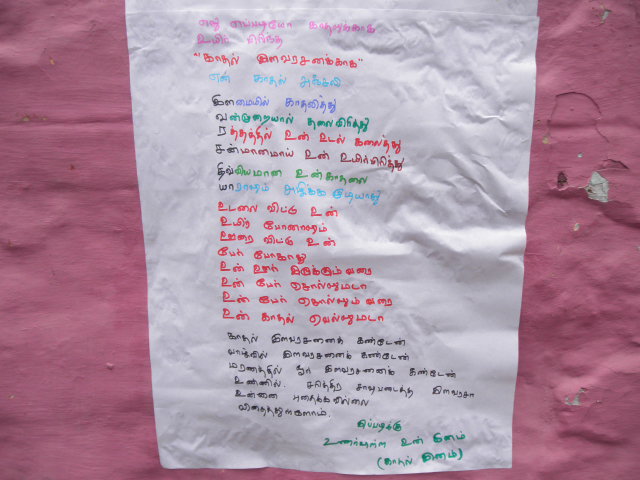 எது எப்படியோ காதலுக்காக
உயிர் பிரிந்த
"காதல் இளவரசனுக்காக"
என் காதல் அஞ்சலி
இளமையில் காதலித்து
வன்முறையால் தலைவிரித்து
ரத்தத்தில் உன் உடல் கலைத்து
சன்மானமாய் உன் உயிர்பிரித்து
திவ்வியமான உன்காதலை
யாராலும் அழிக்க முடியாது
உடலை விட்டு உன்
உயிர் போனாலும்
ஊரை விட்டு உன்
பேர் போகாது
உன் ஊர் இருக்கும்வரை
உன் பேர் சொல்லுமடா
உன் பேர் சொல்லும் வரை
உன் காதல் வெல்லுமடா
காதல் இளவரசனைக் கண்டேன்
வாழ்வில் இளவரசனைக் கண்டேன்
மரணத்தில் ஓர் இளவரசனைக் கண்டேன்
உன்னில். சரித்திர சாவுபடைத்த இளவரசா
உன்னை புதைக்கவில்லை
விதைத்துள்ளோம்.
இப்படிக்கு
உணர்வுள்ள உன் இனம்
(காதல் இனம்)